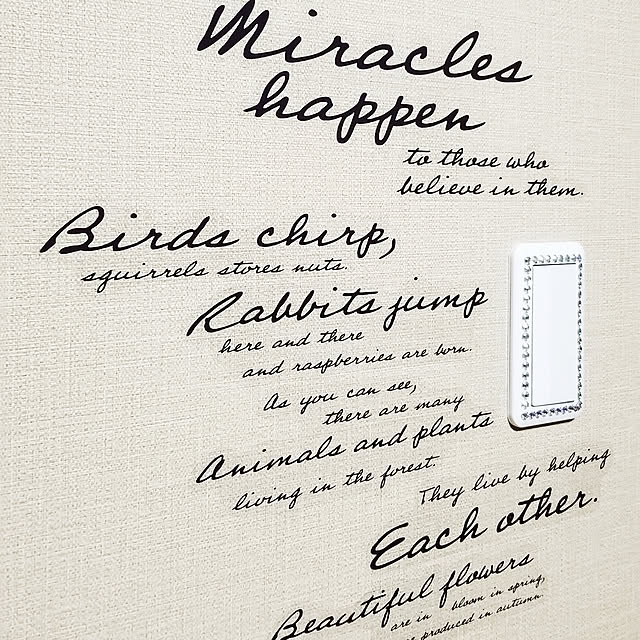 Miracles
happen
to those who
believe in them.
Birds chirp,
squirrels stores nuts.
Rabbits jump
here and there
and raspberries are born.
As you can see,
there are many
Animals and plants
living in the forest.
They live by helping
Each other.
Beautiful flowers
are in bloom in spring,
produced in autumn